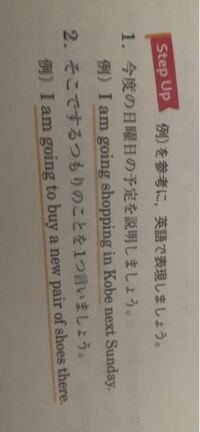 Step Up 例)を参考に，英語で表現しましょう。
1. 今度の日曜日の予定を説明しましょう。
例) I am going shopping in Kobe next Sunday.
2. そこでするつもりのことを1つ言いましょう。
例) I am going to buy a new pair of shoes there.